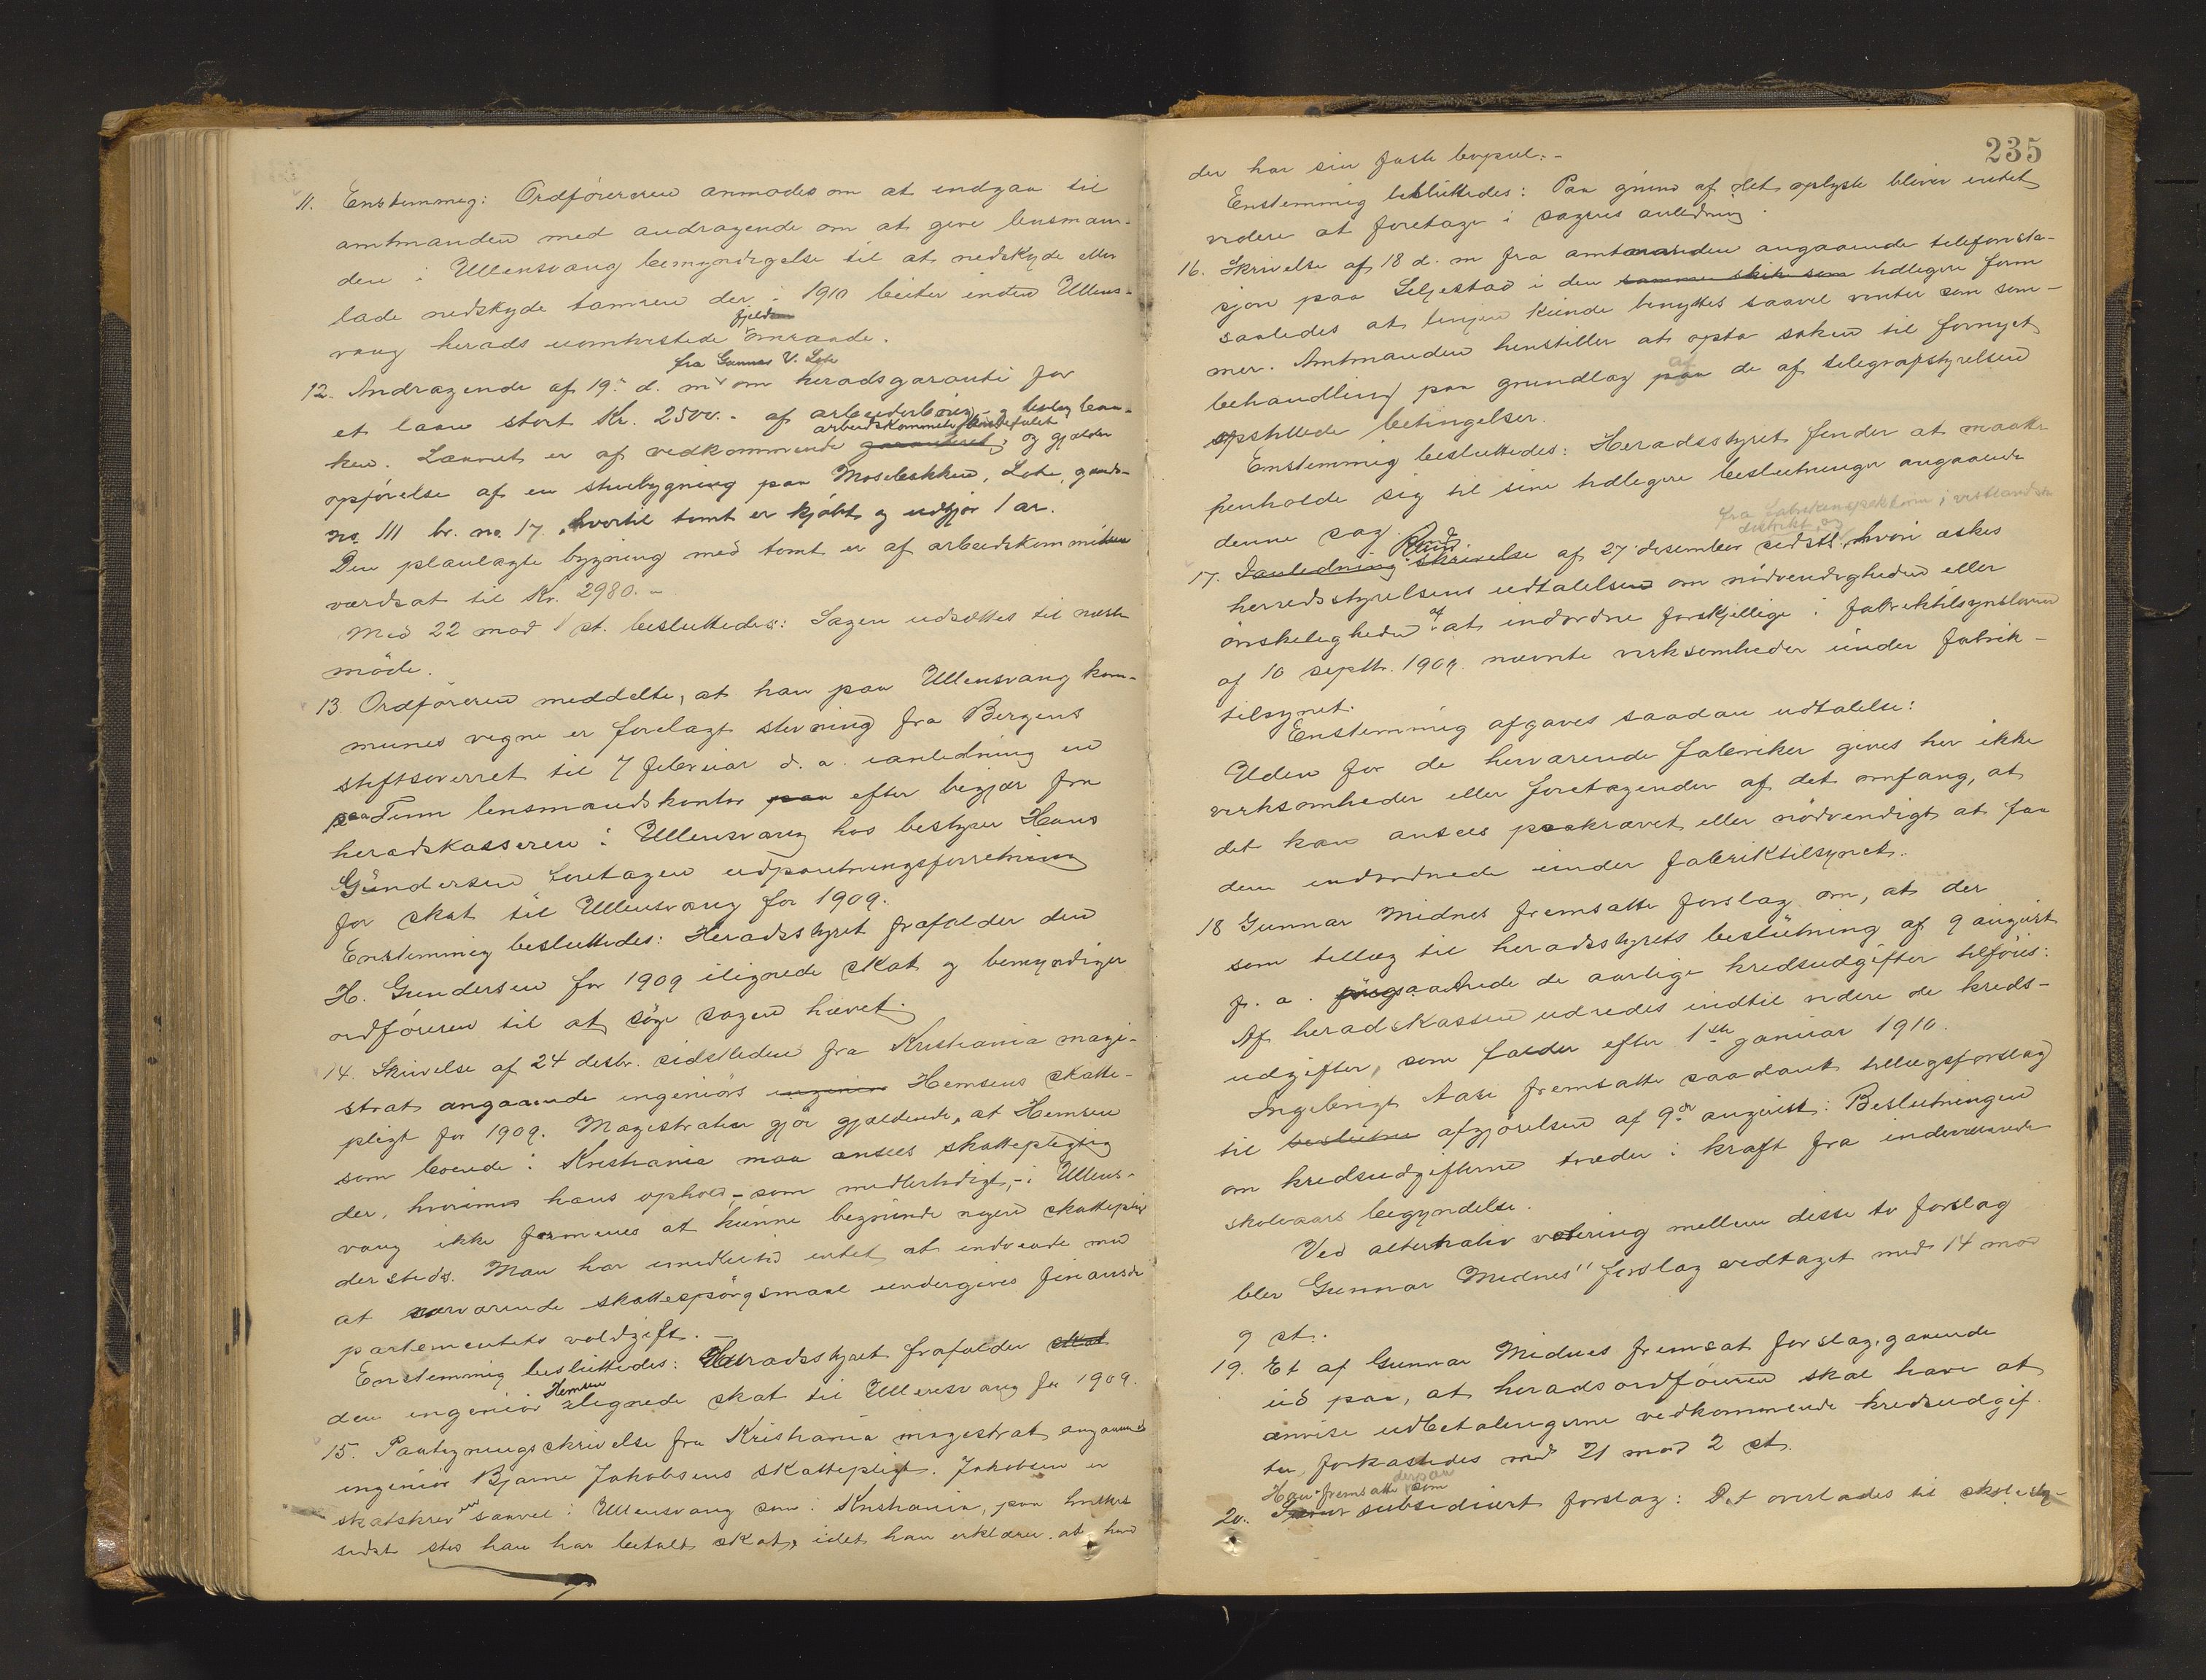 11. Enstemmig: Ordföreren anmodes om at indgaa til
amtmanden med andragende om at give lensman-
den i Ullensvang bemyndigelse til at nedskyde eller
lade nedskyde tamren der i 1910 beiter inden Ullens-
vang herads uomtvistede fjeld omraade.
12. Andragende af 19. d. m. fra Gunnar V. Lote om heradsgaranti for
et laan stort Kr. 2500.- af arbeiderbrug- og bolig ban-
ken. Laanet er af vedkommende arbeidskommite anbefalet garanteret og gjælder
opförelse af en stuebygning paa Moseleikken, Lote, gaards-
no. 111 br. no. 17, hvortil tomt er kjöbt og udgjör 1 ar.
Den planlagte bygning med tomt er af arbeidskommiteen
værdsat til Kr. 2980.-
Med 22 mod 1 st. besluttedes: Sagen udsættes til næste
möde.
13. Ordföreren meddelte, at han paa Ullensvang kom-
munes vegne er forelagt stevning fra Bergens
stiftsoverret til 7 februar d. a. ianledning en
paa Tinn lensmandskontor paa efter begjær fra
heradskasseren i Ullensvang hos bestyrer Hans
Gündersen foretagen udpantningsforretning
for skat til Ullensvang for 1909.
Enstemmig besluttedes: Heradsstyret frafalder den
H. Gundersen for 1909 ilignede skat og bemyndiger
ordföreren til at söge sagen hævet.
14. Skrivelse af 24 desbr. sidstleden fra Kristiania magi-
strat angaaende ingeniörs ingeniör Hemsens skatte-
pligt for 1909. Magistraten gjör gjældende, at Hemsen
som boende i Kristiania maa ansees skattepligtig
der, hvorimod hans ophold,- som midlertidigt,- i Ullens-
vang ikke formenes at kunne begrunde nogen skattepligt
dersteds. Man har imidlertid intet at indvende mod
at nærværende skattespörgsmaal undergives finansde-
partementets voldgift.-
Enstemmig besluttedes: Heradsstyret frafalder skat
den ingeniör Hemsen ilignede skat til Ullensvang for 1909.
15. Paategningsskrivelse fra Kristiania magistrat angaaende
ingeniör Bjarne Jakobsens skattepligt. Jakobsen er
skatskreven saavel i Ullensvang som i Kristiania, paa hvilket
sidst sted han har betalt skat, idet han erklærer at han
235
der har sin faste bopæl.-
Enstemmig besluttedes: Paa grund af det oplyste bliver intet
videre at foretage i sagens anledning.
16. Skrivelse af 18 d. m fra amtmanden angaaende telefonsta-
sjon paa Seljestad i den samme skik som tidligere form
saaledes at linjen kunde benyttes saavel vinter som som-
mer. Amtmanden henstiller at opta saken til fornyet
behandling paa grundlag paa af de af telegrafstyrelsen
opstillede betingelser.
Enstemmig besluttedes: Heradsstyret finder at maatte
henholde sig til sine tidligere beslutninger angaaende
denne sag.
fra fabrikinspektören i vestlandske
distrikt, og
17. Ianledning Rund skrivelse af 27 desember sidstl., hvori æskes
herredsstyrelsens udtalelse om nödvendigheden eller
önskeligheden af at indordne forskjellige i fabriktilsynsloven
af 10 septbr. 1909. nævnte virksomheder under fabrik-
tilsynet.
Enstemmig afgaves saadan udtalelse:
Uden for de herværende fabriker gives her ikke
virksomheder eller foretagender af det omfang, at
det kan ansees paakrævet eller nödvendigt at faa
dem indordnede under fabriktilsynet.
18 Gunnar Midnes fremsatte forslag om, at der
som tillæg til heradsstyrets beslutning af 9 august
f. a. angaaende de aarlige kredsudgifter tilföies:
Af heradskassen udredes indtil videre de kreds-
udgifter, som falder efter 1ste januar 1910.
Ingebrigt Aase fremsatte saadant tillægsforslag
til beslutni afgjörelsen af 9de august: Beslutningen
om kredsudgifterne træder i kraft fra indeværende
skoleaars begyndelse.
Ved alternativ votering mellem disse to forslag
blev Gunnar Midnes' forslag vedtaget med 14 mod
9 st.
19. Et af Gunnar Midnes fremsat forslag, gaaende
ud paa, at heradsordföreren skal have at
anvise udbetalingerne vedkommende kredsudgif-
ter, forkastedes med 21 mod 2 st.
20. Han fremsatte derpaa som subsidiært forslag: Det overlades til skolesty-